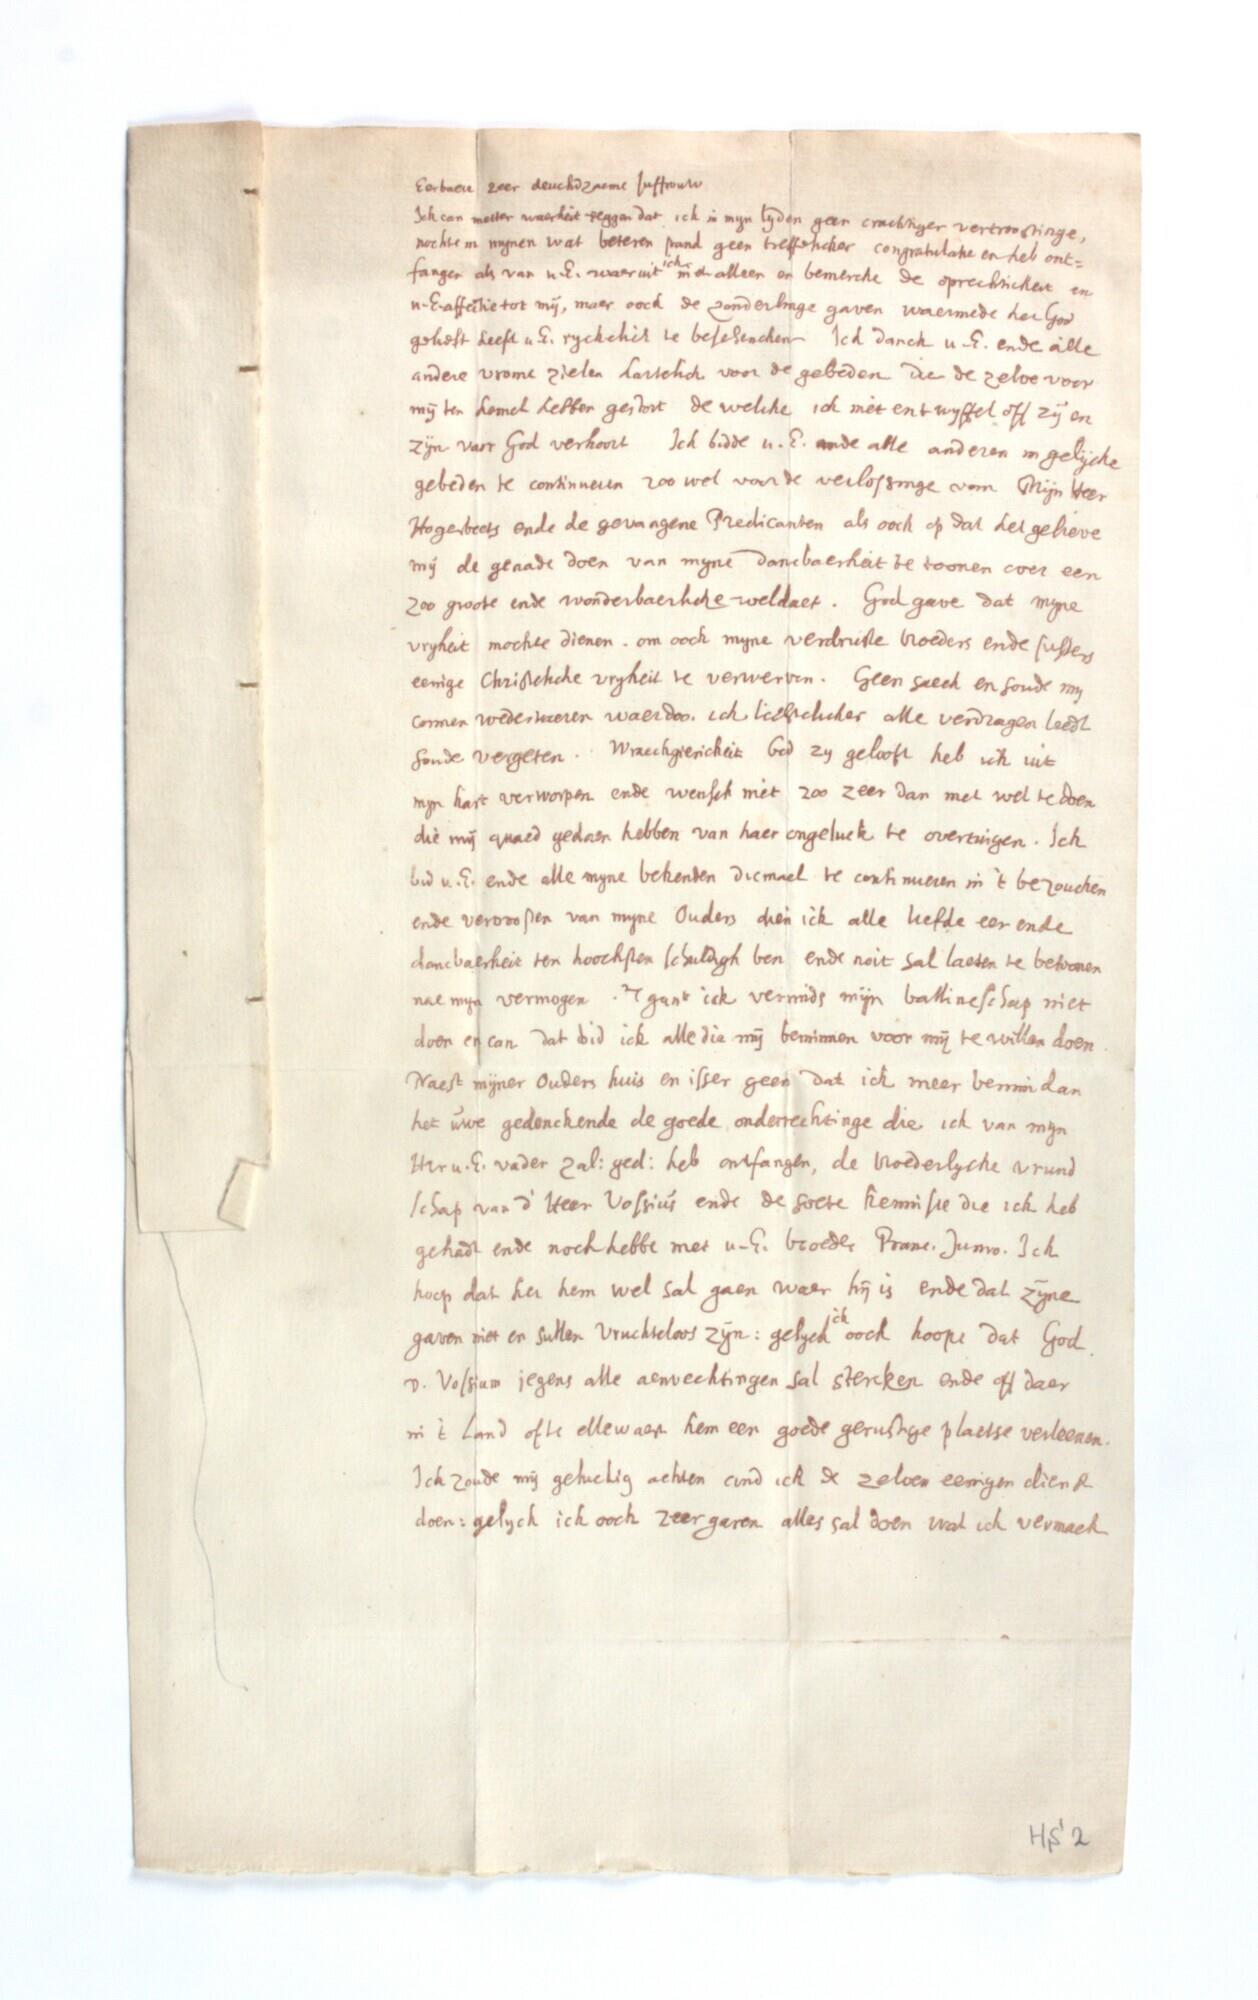 Eerbaere zeer deuchdzaeme Juffrouw
Ick can metter waerheit seggen dat ick in myn lyden geen crachtiger vertroostinge,
nochte in mynen wat beteren stand geen treffelicker congratulatie en heb ont=
fangen als van u.E. waer uit ick niet alleen en bemercke de oprechticheit en
u.E. affectie tot mij, maer oock de zonderlinge gaven waermede het God
gelieft heeft u.E. ryckelick te beschencken Ick danck u.E. ende alle
andere vrome zielen hartelick voor de gebeden die de zelve voor
mij ten hemel hebben gestort de welcke ick niet en twyffel off zij en
zijn van God verhoort Ick bidde u.E. ende alle anderen in gelijcke
gebeden te continueren zoo wel voor de verlossinge van Mijn Heer
Hogerbeets ende de gevangene Predicanten als oock op dat het gelieve
mij de genade doen van myne dancbaerheit te toonen over een
zoo groote ende wonderbaerlicke weldaet. God gave dat myne
vryheit mochte dienen om oock myne verdruckte broeders ende susters
eenige Christelicke vryheit te verwerven. Geen saeck en soude my
connen wedervaeren waerdoor ick lichtelicker alle verdragen leedt
soude vergeten. Wraeckgiericheit God zy gelooft heb ick uit
myn hart verworpen ende wensch niet zoo zeer dan met wel te doen
die mij quaed gedaen hebben van haer ongeluck te overtuigen. Ick
bid u.E. ende alle myne bekenden diemael te continueren in 't bezoucken
ende vertroosten van myne Ouders dien ick alle liefde eer ende
dancbaerheit ten hoochsten schuldigh ben ende noit sal laeten te betoonen
nae myn vermogen. 'T gunt ick vermids mijn ballineschap niet
doen en can dat bid ick alle die mij beminnen voor mij te willen doen.
Naest mijner Ouders huis en isser geen dat ick meer bemin dan
het uwe gedenckende de goede onderrechtinge die ick van myn
Heer u.E. vader zal: ged: heb ontfangen, de broederlycke vrund
schap van d' Heer Vossius ende de soete kennisse die ick heb
gehadt ende noch hebbe met u.E. broeder Franc. Junio. Ick
hoop dat het hem wel sal gaen waer hij is ende dat zijne
gaven niet en sullen vruchteloos zijn: gelyck ick oock hoope dat God
D. Vossium jegens alle aenvechtingen sal stercken ende off daer
in 't Land ofte ellewaer hem een goede gerustige plaetse verleenen.
Ick zoude mij geluckig achten cond ick de zelven eenigen dienst
doen: gelyck ick oock zeer garen alles sal doen wat ick vermach
HS' 2